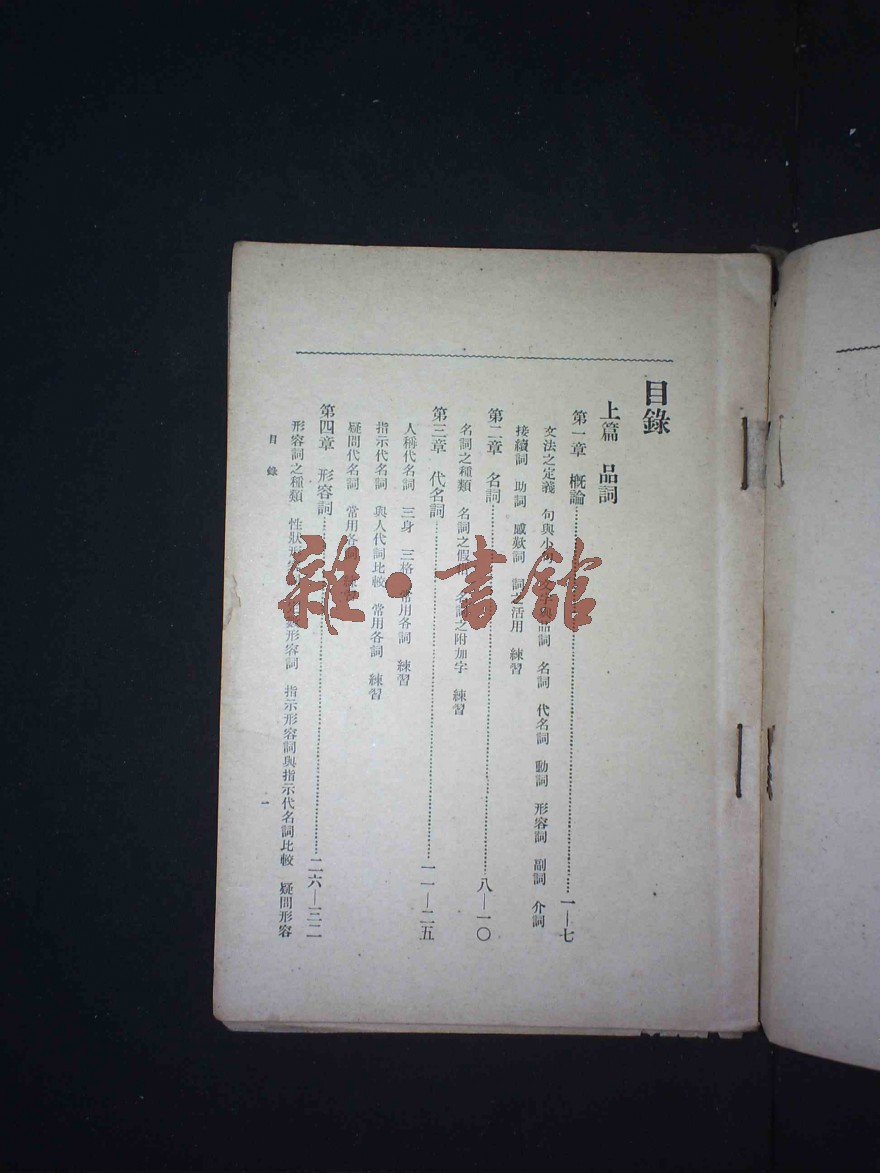 目錄
上篇 品詞
第一章 概論 一—七
文法之定義 句與小 品詞 名詞 代名詞 動詞 形容詞 副詞 介詞
接續詞 助詞 感歎詞 詞之活用 練習
第二章 名詞 八—一〇
名詞之種類 名詞之假 名詞之附加字 練習
第三章 代名詞 一一—二五
人稱代名詞 三身 三格 常用各詞 練習
指示代名詞 與人代詞比較 常用各詞 練習
疑問代名詞 常用各詞
第四章 形容詞 二六—三二
形容詞之種類 性狀形 形容詞 指示形容詞與指示代名詞比較 疑問形容
目錄
一
雜·書館